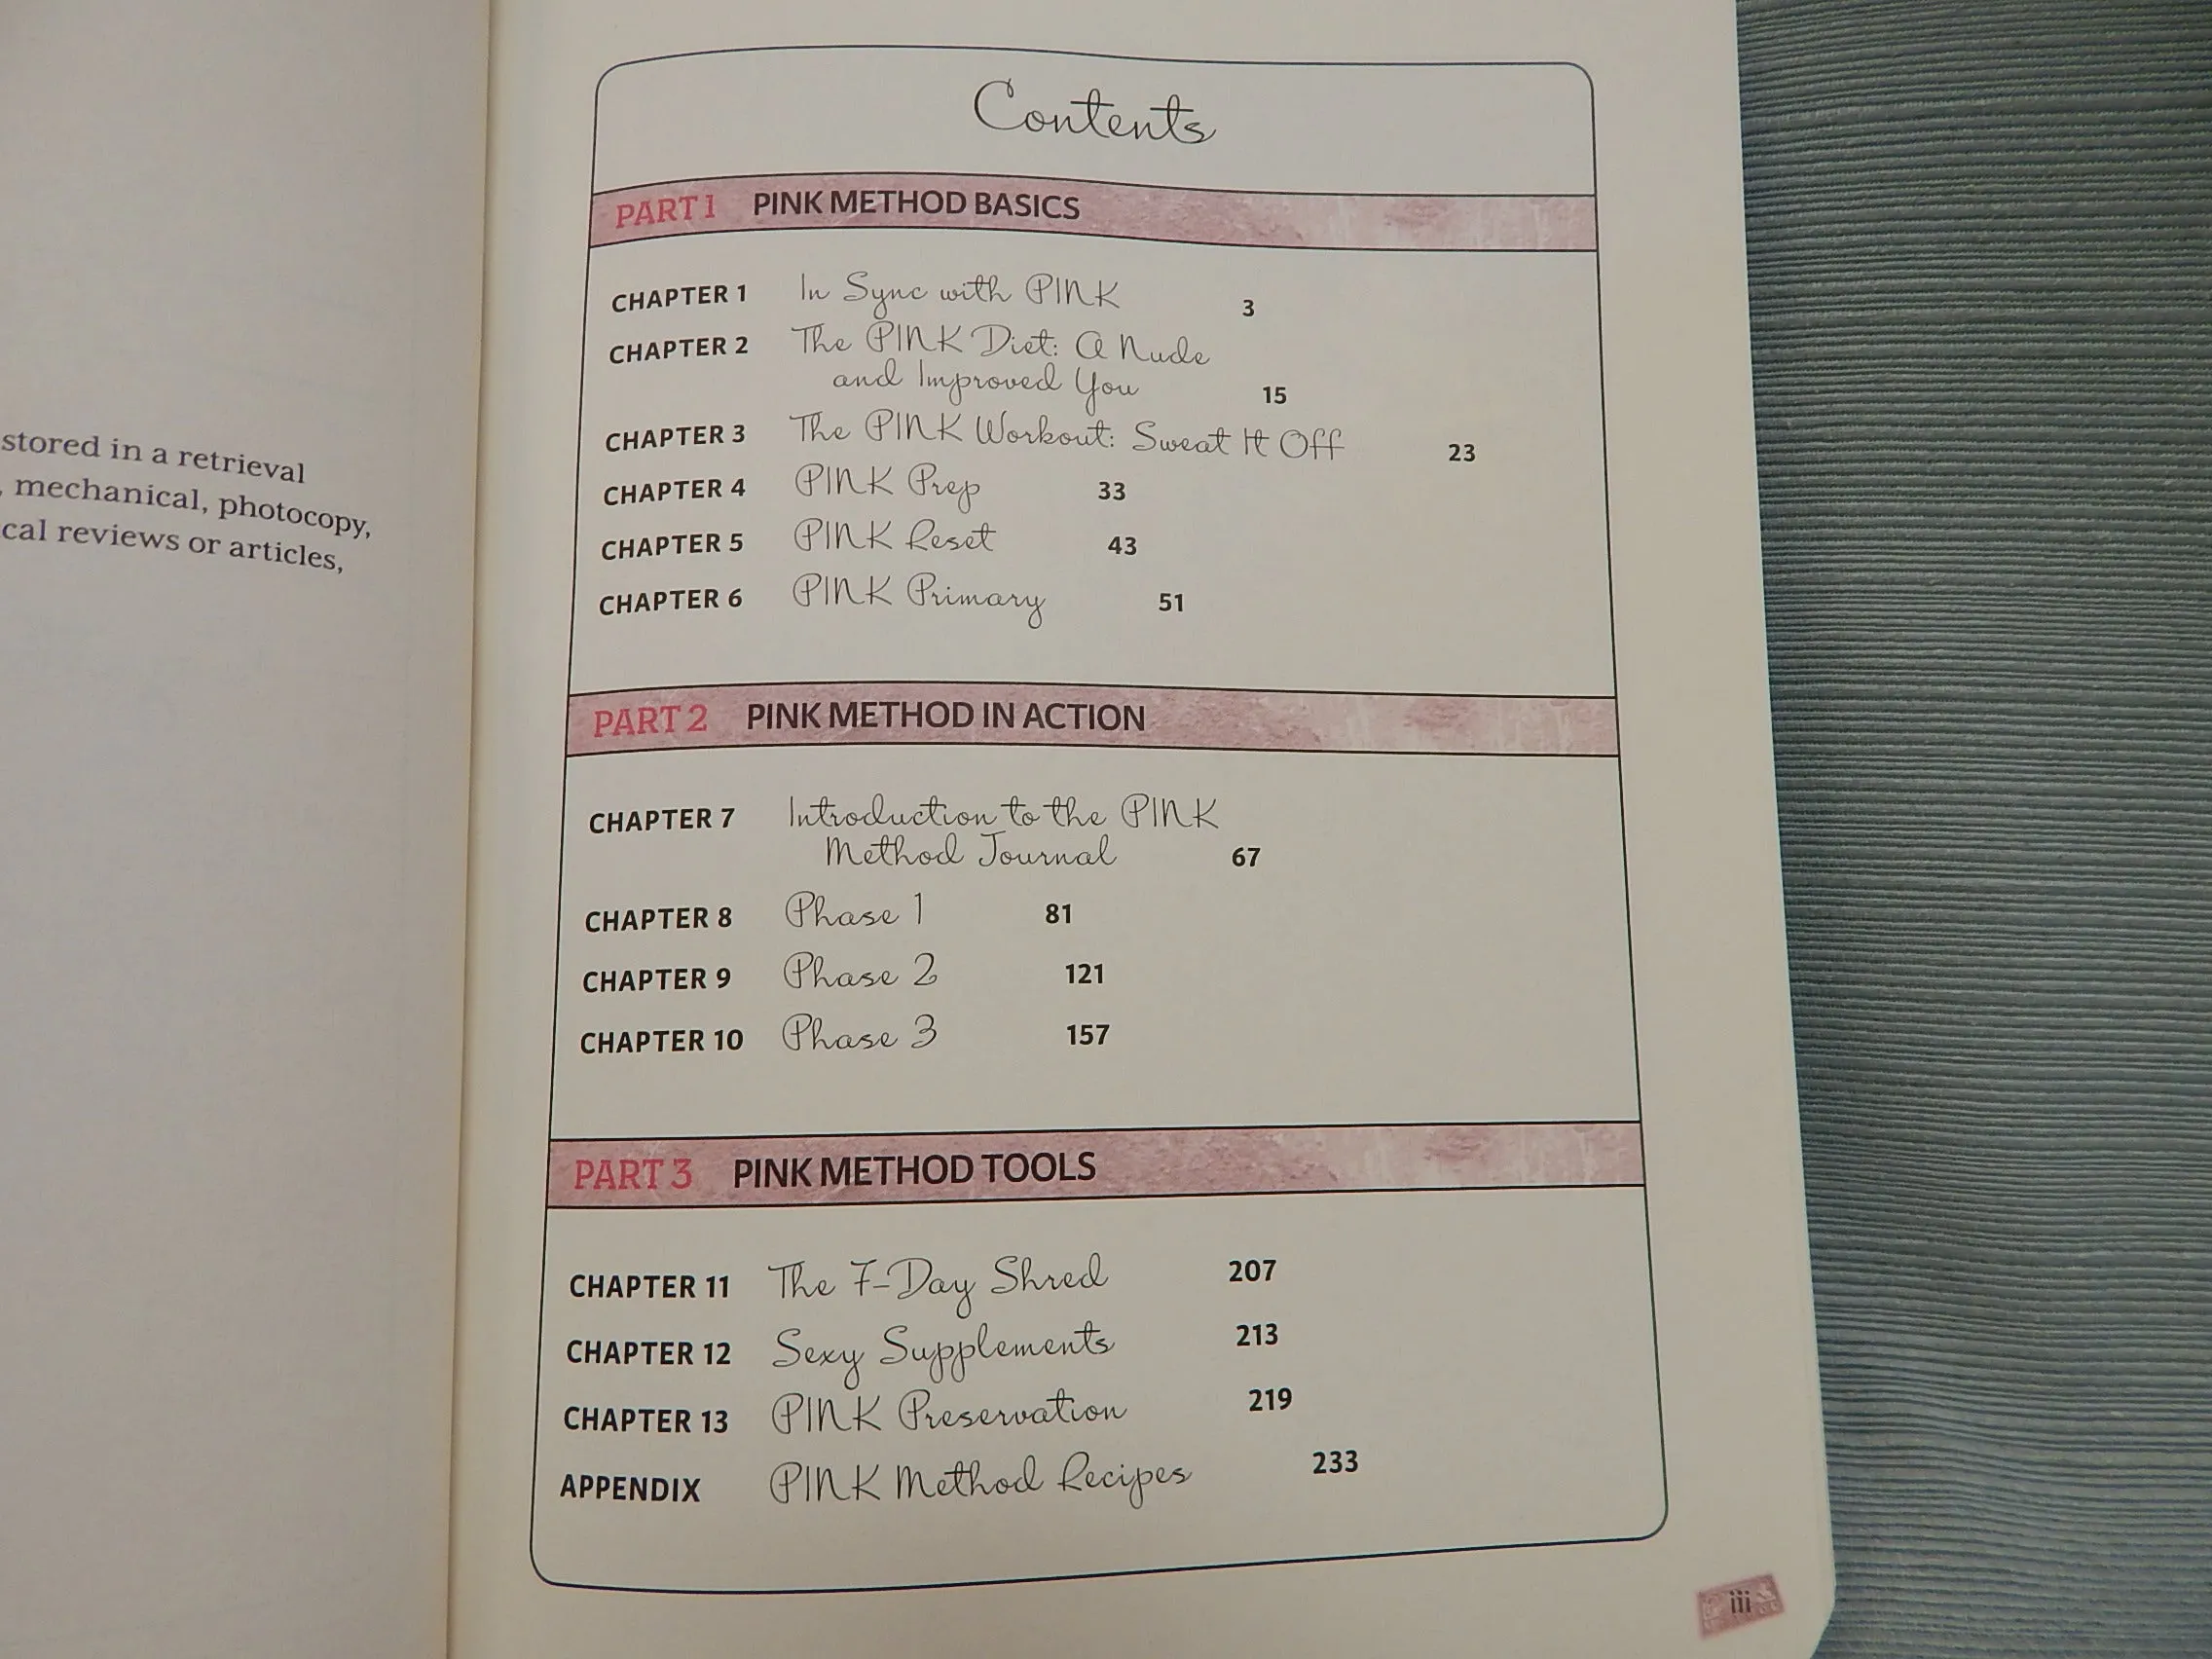 stored in a retrieval
, mechanical, photocopy,
cal reviews or articles,
Contents
PART 1 PINK METHOD BASICS
CHAPTER 1 In Sync with PINK 3
CHAPTER 2 The PINK Diet: A Nude
and Improved You 15
CHAPTER 3 The PINK Workout: Sweat It Off 23
CHAPTER 4 PINK Prep 33
CHAPTER 5 PINK Reset 43
CHAPTER 6 PINK Primary 51
PART 2 PINK METHOD IN ACTION
CHAPTER 7 Introduction to the PINK
Method Journal 67
CHAPTER 8 Phase 1 81
CHAPTER 9 Phase 2 121
CHAPTER 10 Phase 3 157
PART 3 PINK METHOD TOOLS
CHAPTER 11 The 7-Day Shred 207
CHAPTER 12 Sexy Supplements 213
CHAPTER 13 PINK Preservation 219
APPENDIX PINK Method Recipes 233
iii